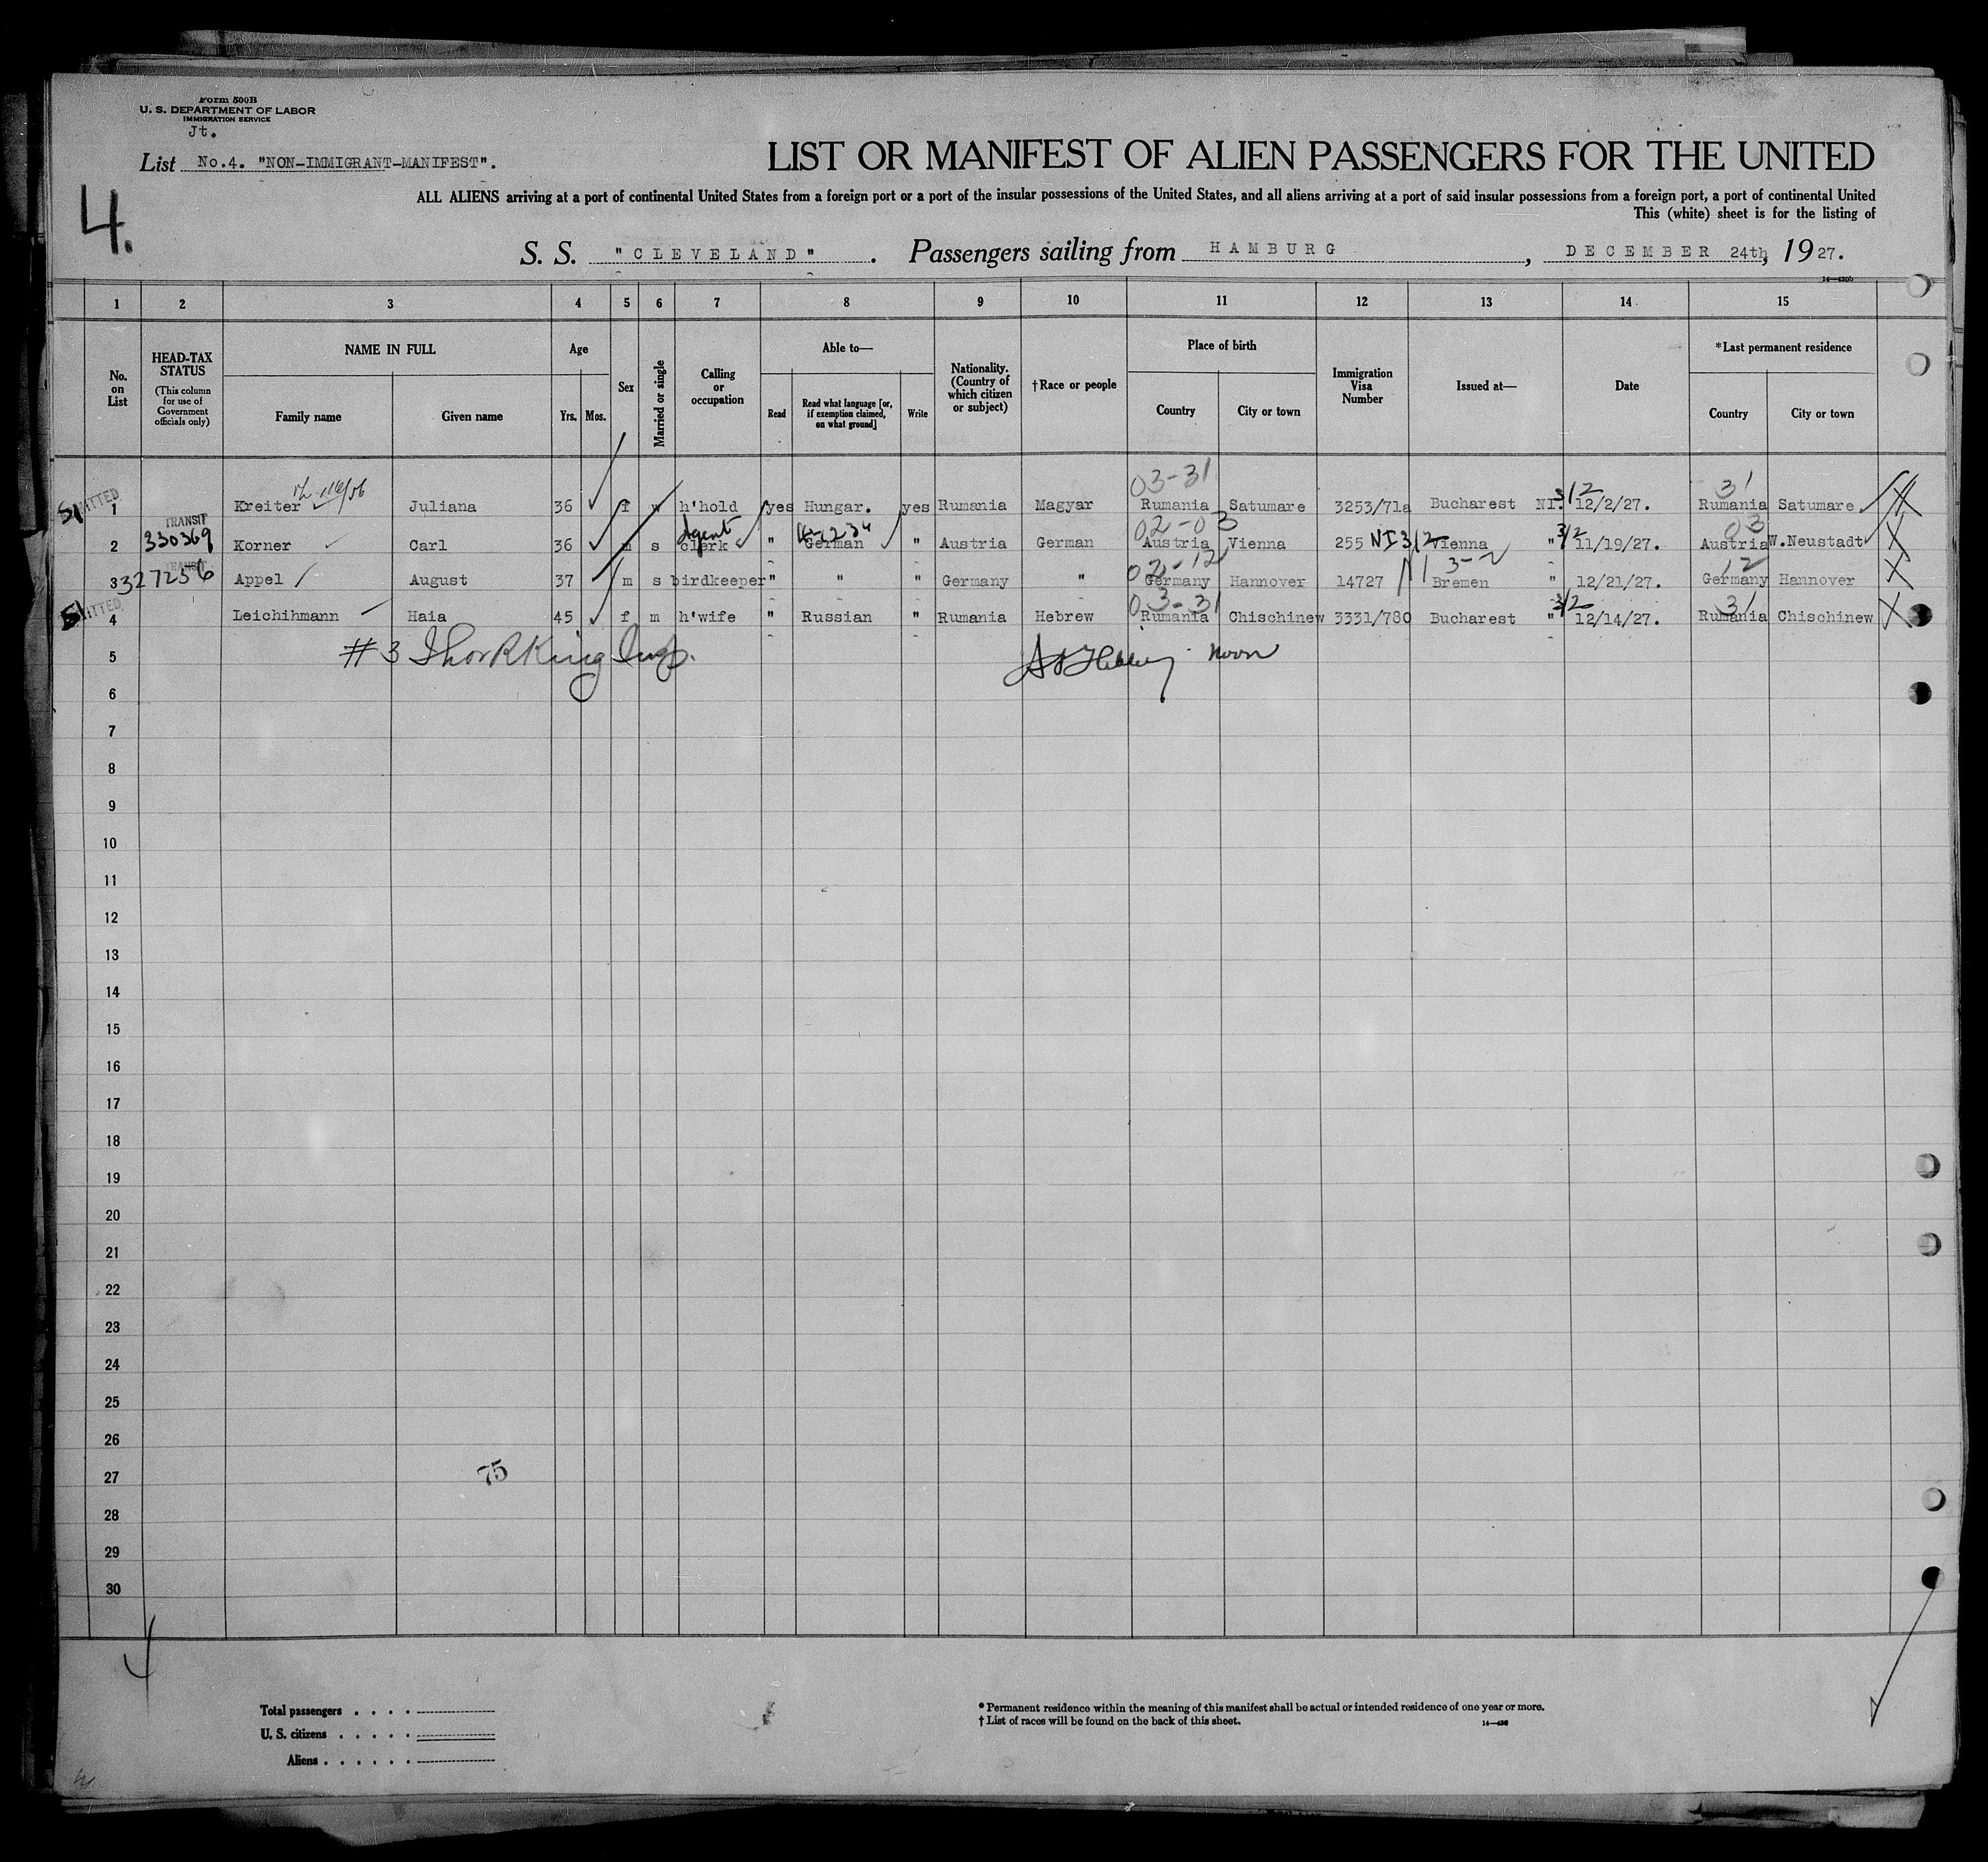 Form 500B
U. S. DEPARTMENT OF LABOR
IMMIGRATION SERVICE
Jt.
List No.4. "NON-IMMIGRANT-MANIFEST".
4.
LIST OR MANIFEST OF ALIEN PASSENGERS FOR THE UNITED
ALL ALIENS arriving at a port of continental United States from a foreign port or a port of the insular possessions of the United States, and all aliens arriving at a port of said insular possessions from a foreign port, a port of continental United
This (white) sheet is for the listing of
S. S. "CLEVELAND". Passengers sailing from HAMBURG, DECEMBER 24th, 1927.
1 2 3 4 5 6 7 8 9 10 11 12 13 14 15
No. on List
HEAD-TAX STATUS (This column for use of Government officials only)
NAME IN FULL Family name Given name
Age Yrs. Mos.
Sex
Married or single
Calling or occupation
Able to— Read Read what language [or, if exemption claimed, on what ground] Write
Nationality. (Country of which citizen or subject)
†Race or people
Place of birth Country City or town
Immigration Visa Number
Issued at—
Date
*Last permanent residence Country City or town
03-31 3/2 31
1 Kreiter Juliana 36 f w h'hold yes Hungar. yes Rumania Magyar Rumania Satumare 3253/71a Bucharest NI. 12/2/27. Rumania Satumare
TRANSIT Agent 02-03 3/2 03
330369 2 Korner Carl 36 m s clerk " German " Austria German Austria Vienna 255 NI 3/2 Vienna " 11/19/27. Austria W.Neustadt
TRANSIT 02-12 3-2 12
327256 3 Appel August 37 m s birdkeeper " " " Germany " Germany Hannover 14727 Bremen " 12/21/27. Germany Hannover
03-31 3/2 31
4 Leichihmann Haia 45 f m h'wife " Russian " Rumania Hebrew Rumania Chischinew 3331/780 Bucharest " 12/14/27. Rumania Chischinew
5 #3 Insp. Noon
6
7
8
9
10
11
12
13
14
15
16
17
18
19
20
21
22
23
24
25
26
27 75
28
29
30
Total passengers . . . .
U. S. citizens . . . . .
Aliens . . . . . .
* Permanent residence within the meaning of this manifest shall be actual or intended residence of one year or more.
† List of races will be found on the back of this sheet.